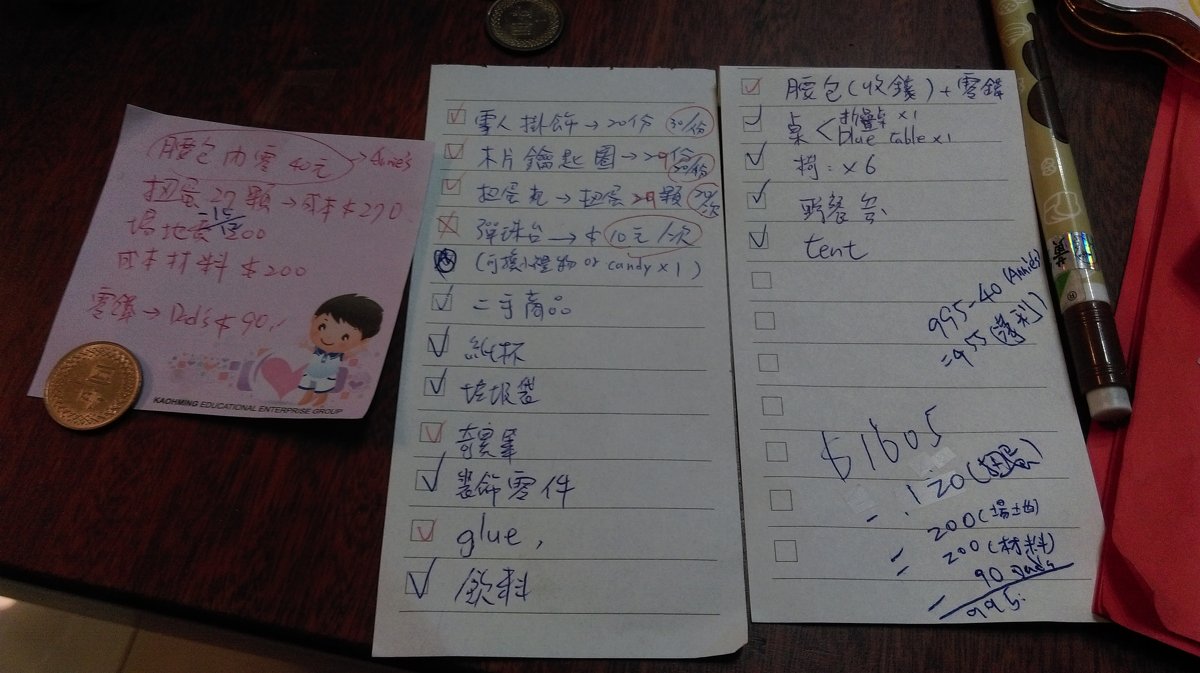 腰包內零40元→Annie's
扭蛋27顆→成本$270
-15
12
場地費200
成本材料$200
零錢→Dad's $90
KAOHMING EDUCATIONAL ENTERPRISE GROUP
雪人掛飾→20份 30/份
木片鑰匙圈→20份 30/份
扭蛋丸→扭蛋27顆
彈珠台→$10元/次
(可換小禮物or candy×1)
二手商品
紙杯
垃圾袋
奇異筆
裝飾零件
glue,
飲料
腰包(收錢)+零錢
桌<折疊桌×1
blue table×1
椅:×6
野餐墊
tent
995-40(Annie's)
=955(獲利)
$1605
-120(扭蛋)
200(場地)
200(材料)
90 Dad's
995